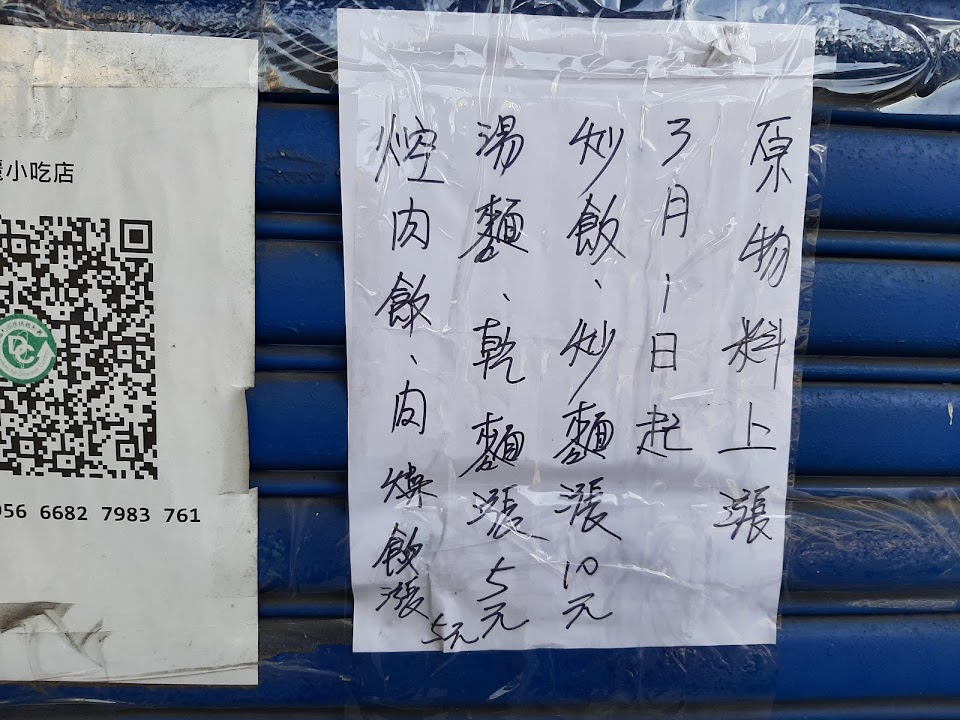 原物料上漲
3月1日起
炒飯、炒麵漲10元
湯麵、乾麵漲5元
焢肉飯、肉燥飯漲5元
小吃店
56 6682 7983 761